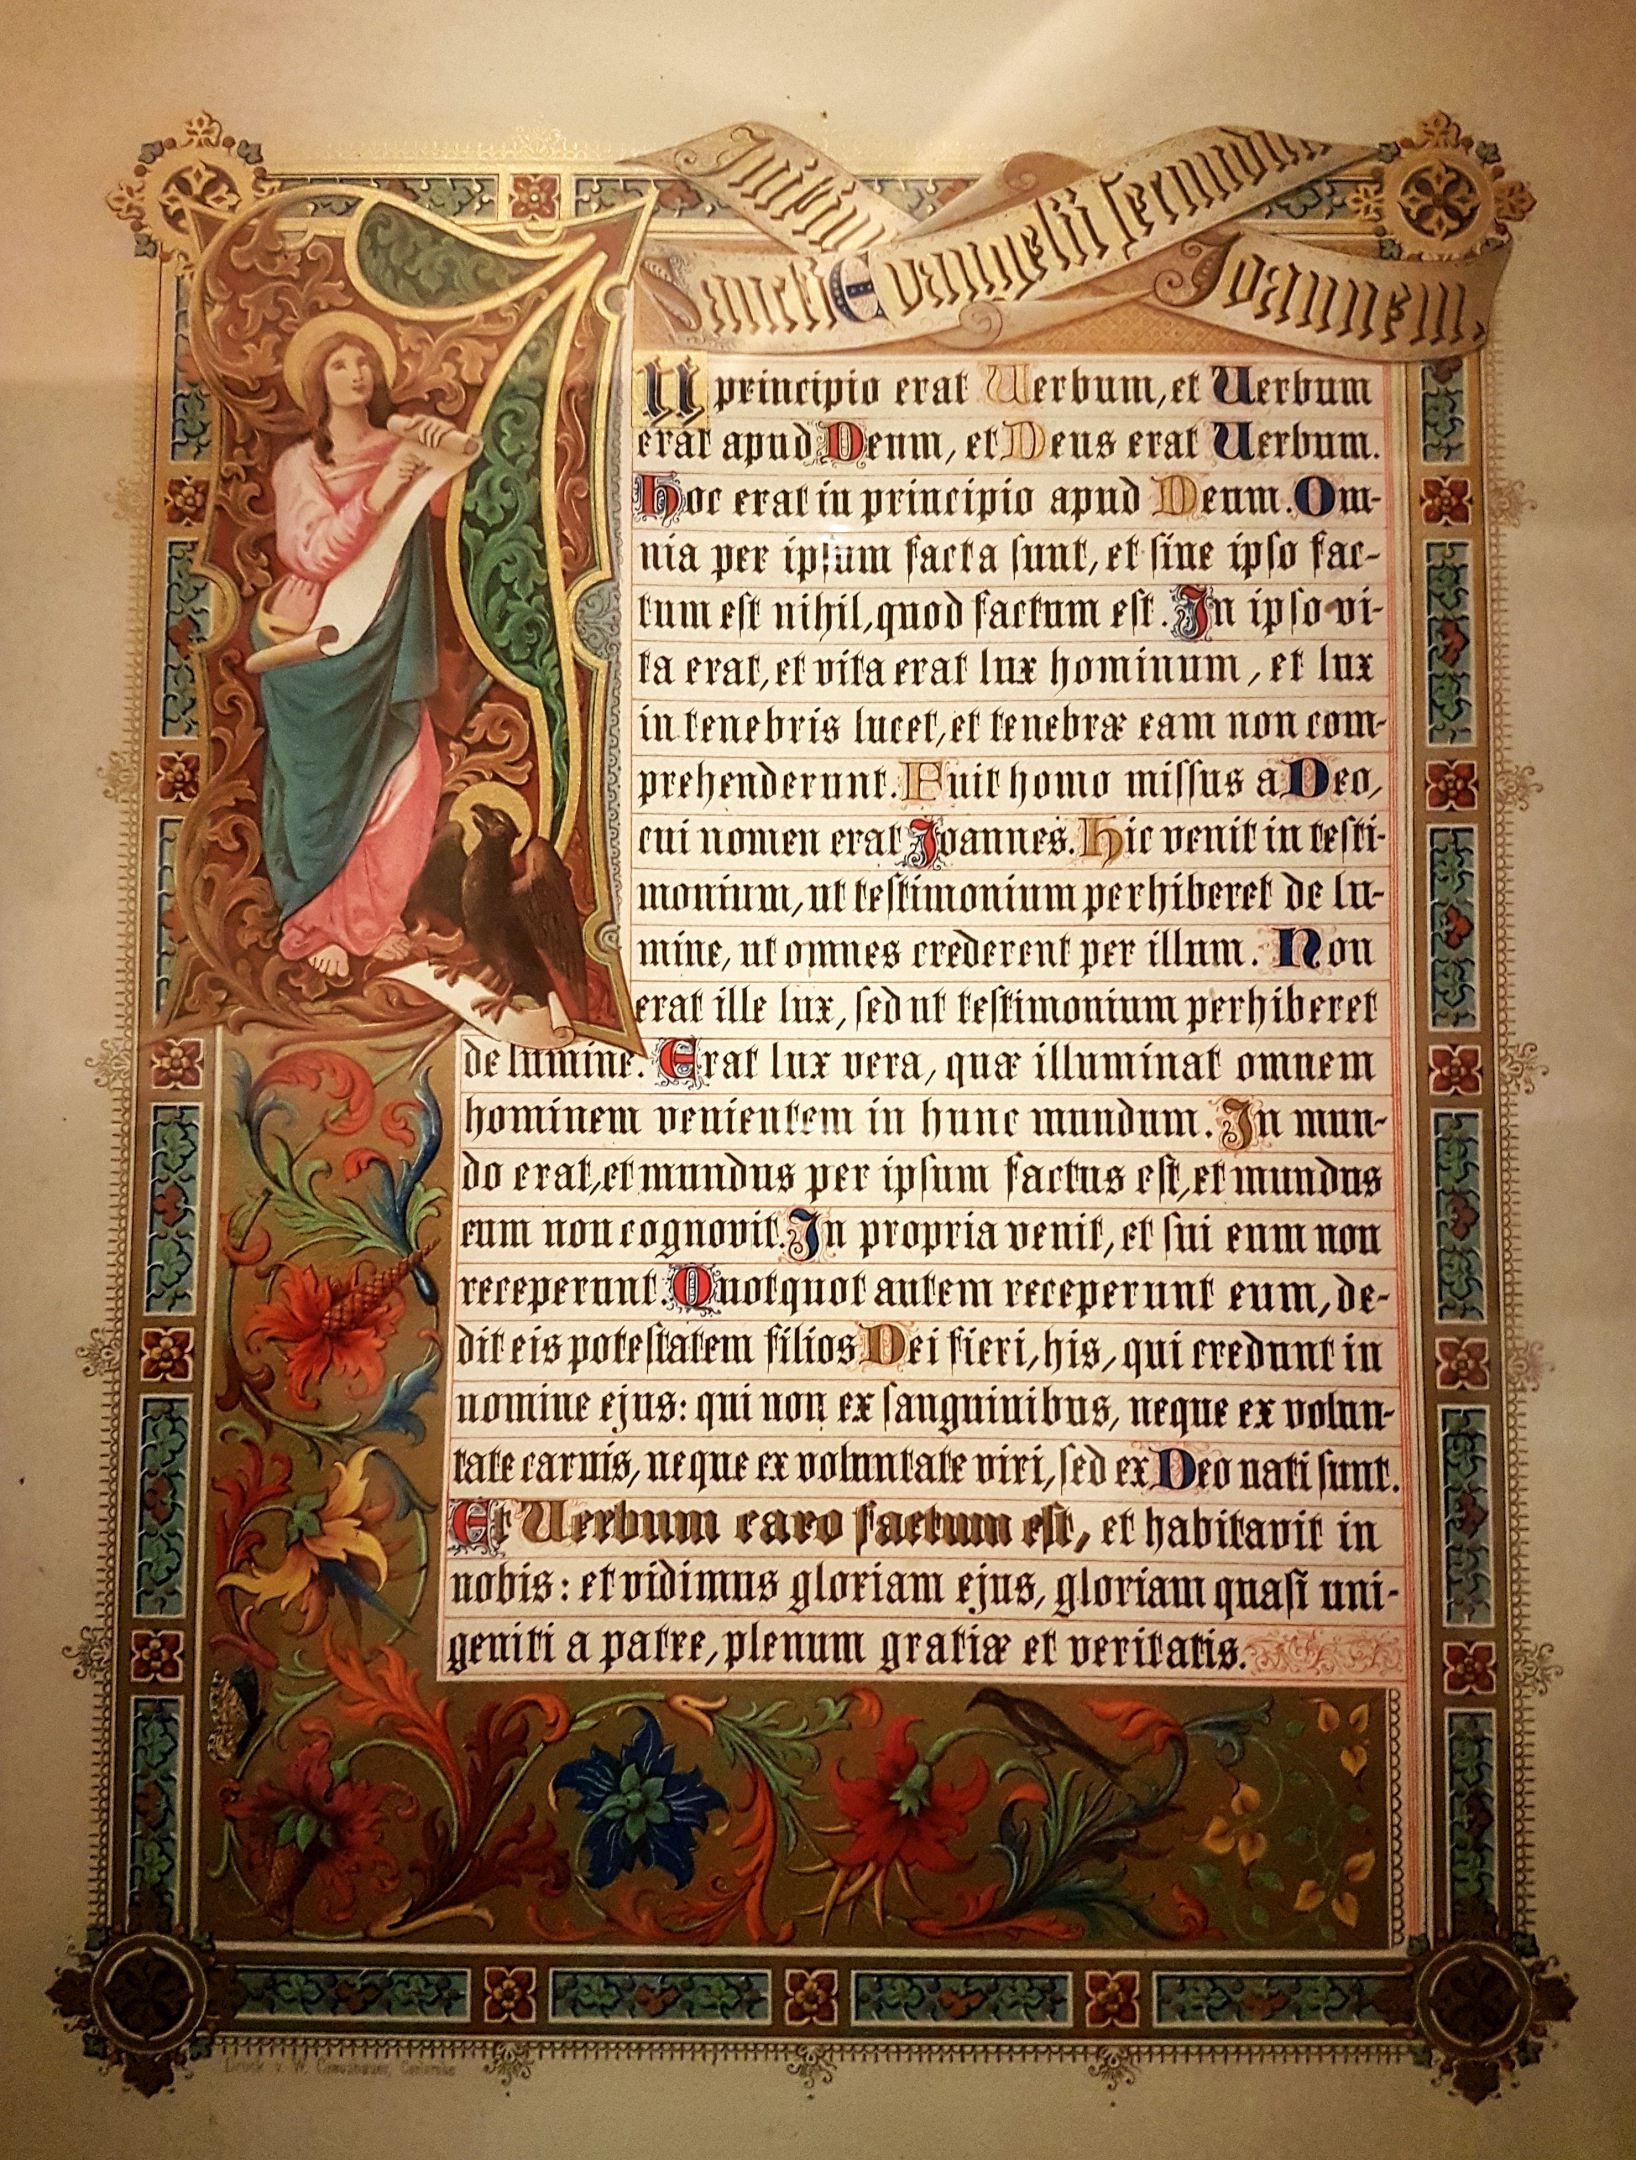 Initium
Sancti Evangelii secundum
Joannem.
In principio erat Verbum, et Verbum
erat apud Deum, et Deus erat Verbum.
Hoc erat in principio apud Deum. Om-
nia per ipsum facta sunt, et sine ipso fac-
tum est nihil, quod factum est. In ipso vi-
ta erat, et vita erat lux hominum, et lux
in tenebris lucet, et tenebræ eam non com-
prehenderunt. Fuit homo missus a Deo,
cui nomen erat Joannes. Hic venit in testi-
monium, ut testimonium perhiberet de lu-
mine, ut omnes crederent per illum. Non
erat ille lux, sed ut testimonium perhiberet
de lumine. Erat lux vera, quæ illuminat omnem
hominem venientem in hunc mundum. In mun-
do erat, et mundus per ipsum factus est, et mundus
eum non cognovit. In propria venit, et sui eum non
receperunt. Quotquot autem receperunt eum, de-
dit eis potestatem filios Dei fieri, his, qui credunt in
nomine ejus: qui non ex sanguinibus, neque ex volun-
tate carnis, neque ex voluntate viri, sed ex Deo nati sunt.
Et Verbum caro factum est, et habitavit in
nobis: et vidimus gloriam ejus, gloriam quasi uni-
geniti a patre, plenum gratiæ et veritatis.
Druck v. W. Creuzbauer, Carlsruhe